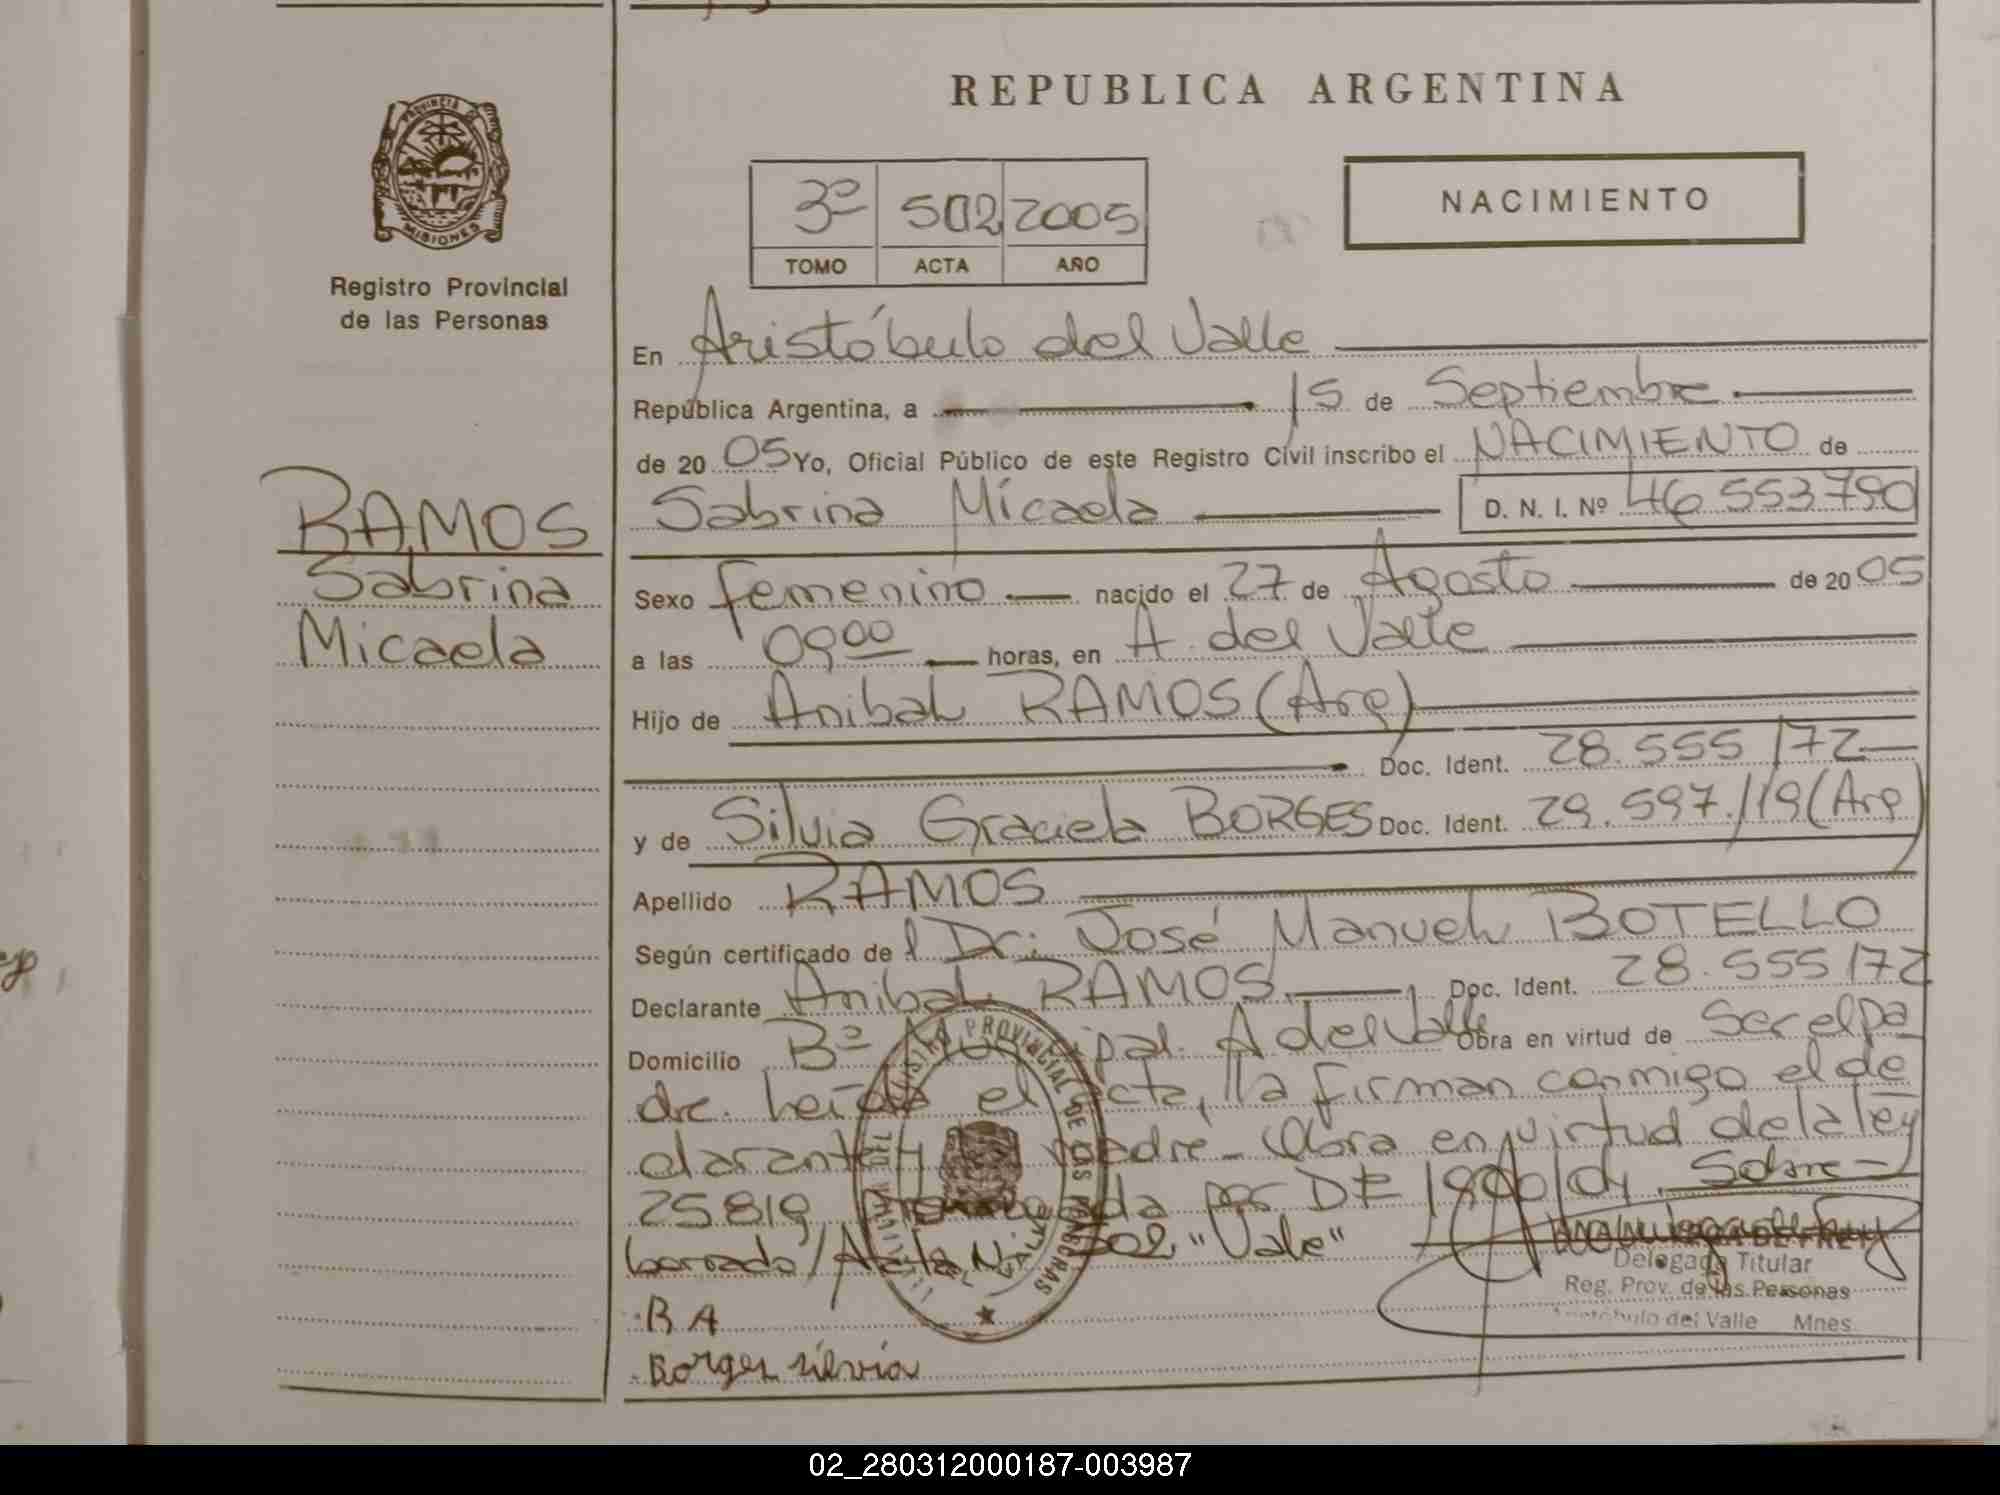 REPUBLICA ARGENTINA
PROVINCIA DE MISIONES
Registro Provincial
de las Personas
3º 502 2005
TOMO ACTA AÑO
NACIMIENTO
En Aristóbulo del Valle
República Argentina, a 15 de Septiembre
de 2005 Yo, Oficial Público de este Registro Civil inscribo el NACIMIENTO de
Sabrina Micaela D. N. I. Nº 46.553.790
RAMOS
Sabrina
Micaela
Sexo femenino nacido el 27 de Agosto de 2005
a las 09⁰⁰ horas, en A. del Valle
Hijo de Anibal RAMOS (Arg)
Doc. Ident. 28.555.172
y de Silvia Graciela BORGES Doc. Ident. 29.597.119 (Arg)
Apellido RAMOS
Según certificado de l Dr. José Manuel BOTELLO
Declarante Anibal RAMOS Doc. Ident. 28.555.172
Domicilio Bº Municipal. A del Valle Obra en virtud de Ser el pa
dre. Leída el acta, la firman conmigo el de
clarante y madre - Obra en virtud de la ley
25.819 por D 1990/04. Sobre-
borrado/Acta Nº 502 "Vale"
Delegada Titular
Reg. Prov. de las Personas
Aristóbulo del Valle Mnes.
REGISTRO PROVINCIAL DE LAS PERSONAS
R A
Borges silvia
02_280312000187-003987